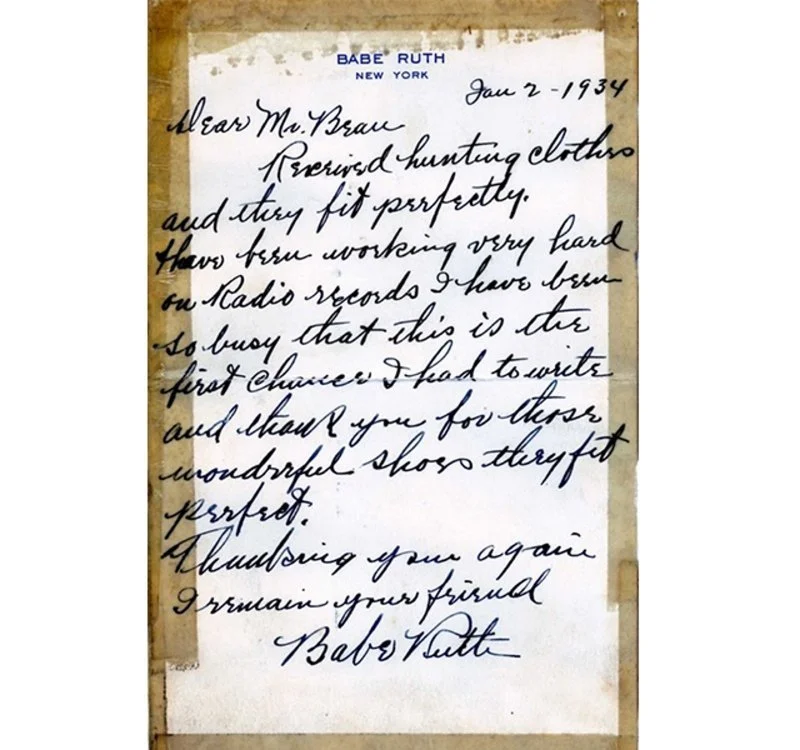 BABE RUTH
NEW YORK
Jan 2 - 1934
Dear Mr. Bean
Received hunting clothes
and they fit perfectly.
Have been working very hard
on Radio records I have been
so busy that this is the
first chance I had to write
and thank you for those
wonderful shoes they fit
perfect.
Thanking you again
I remain your friend
Babe Ruth